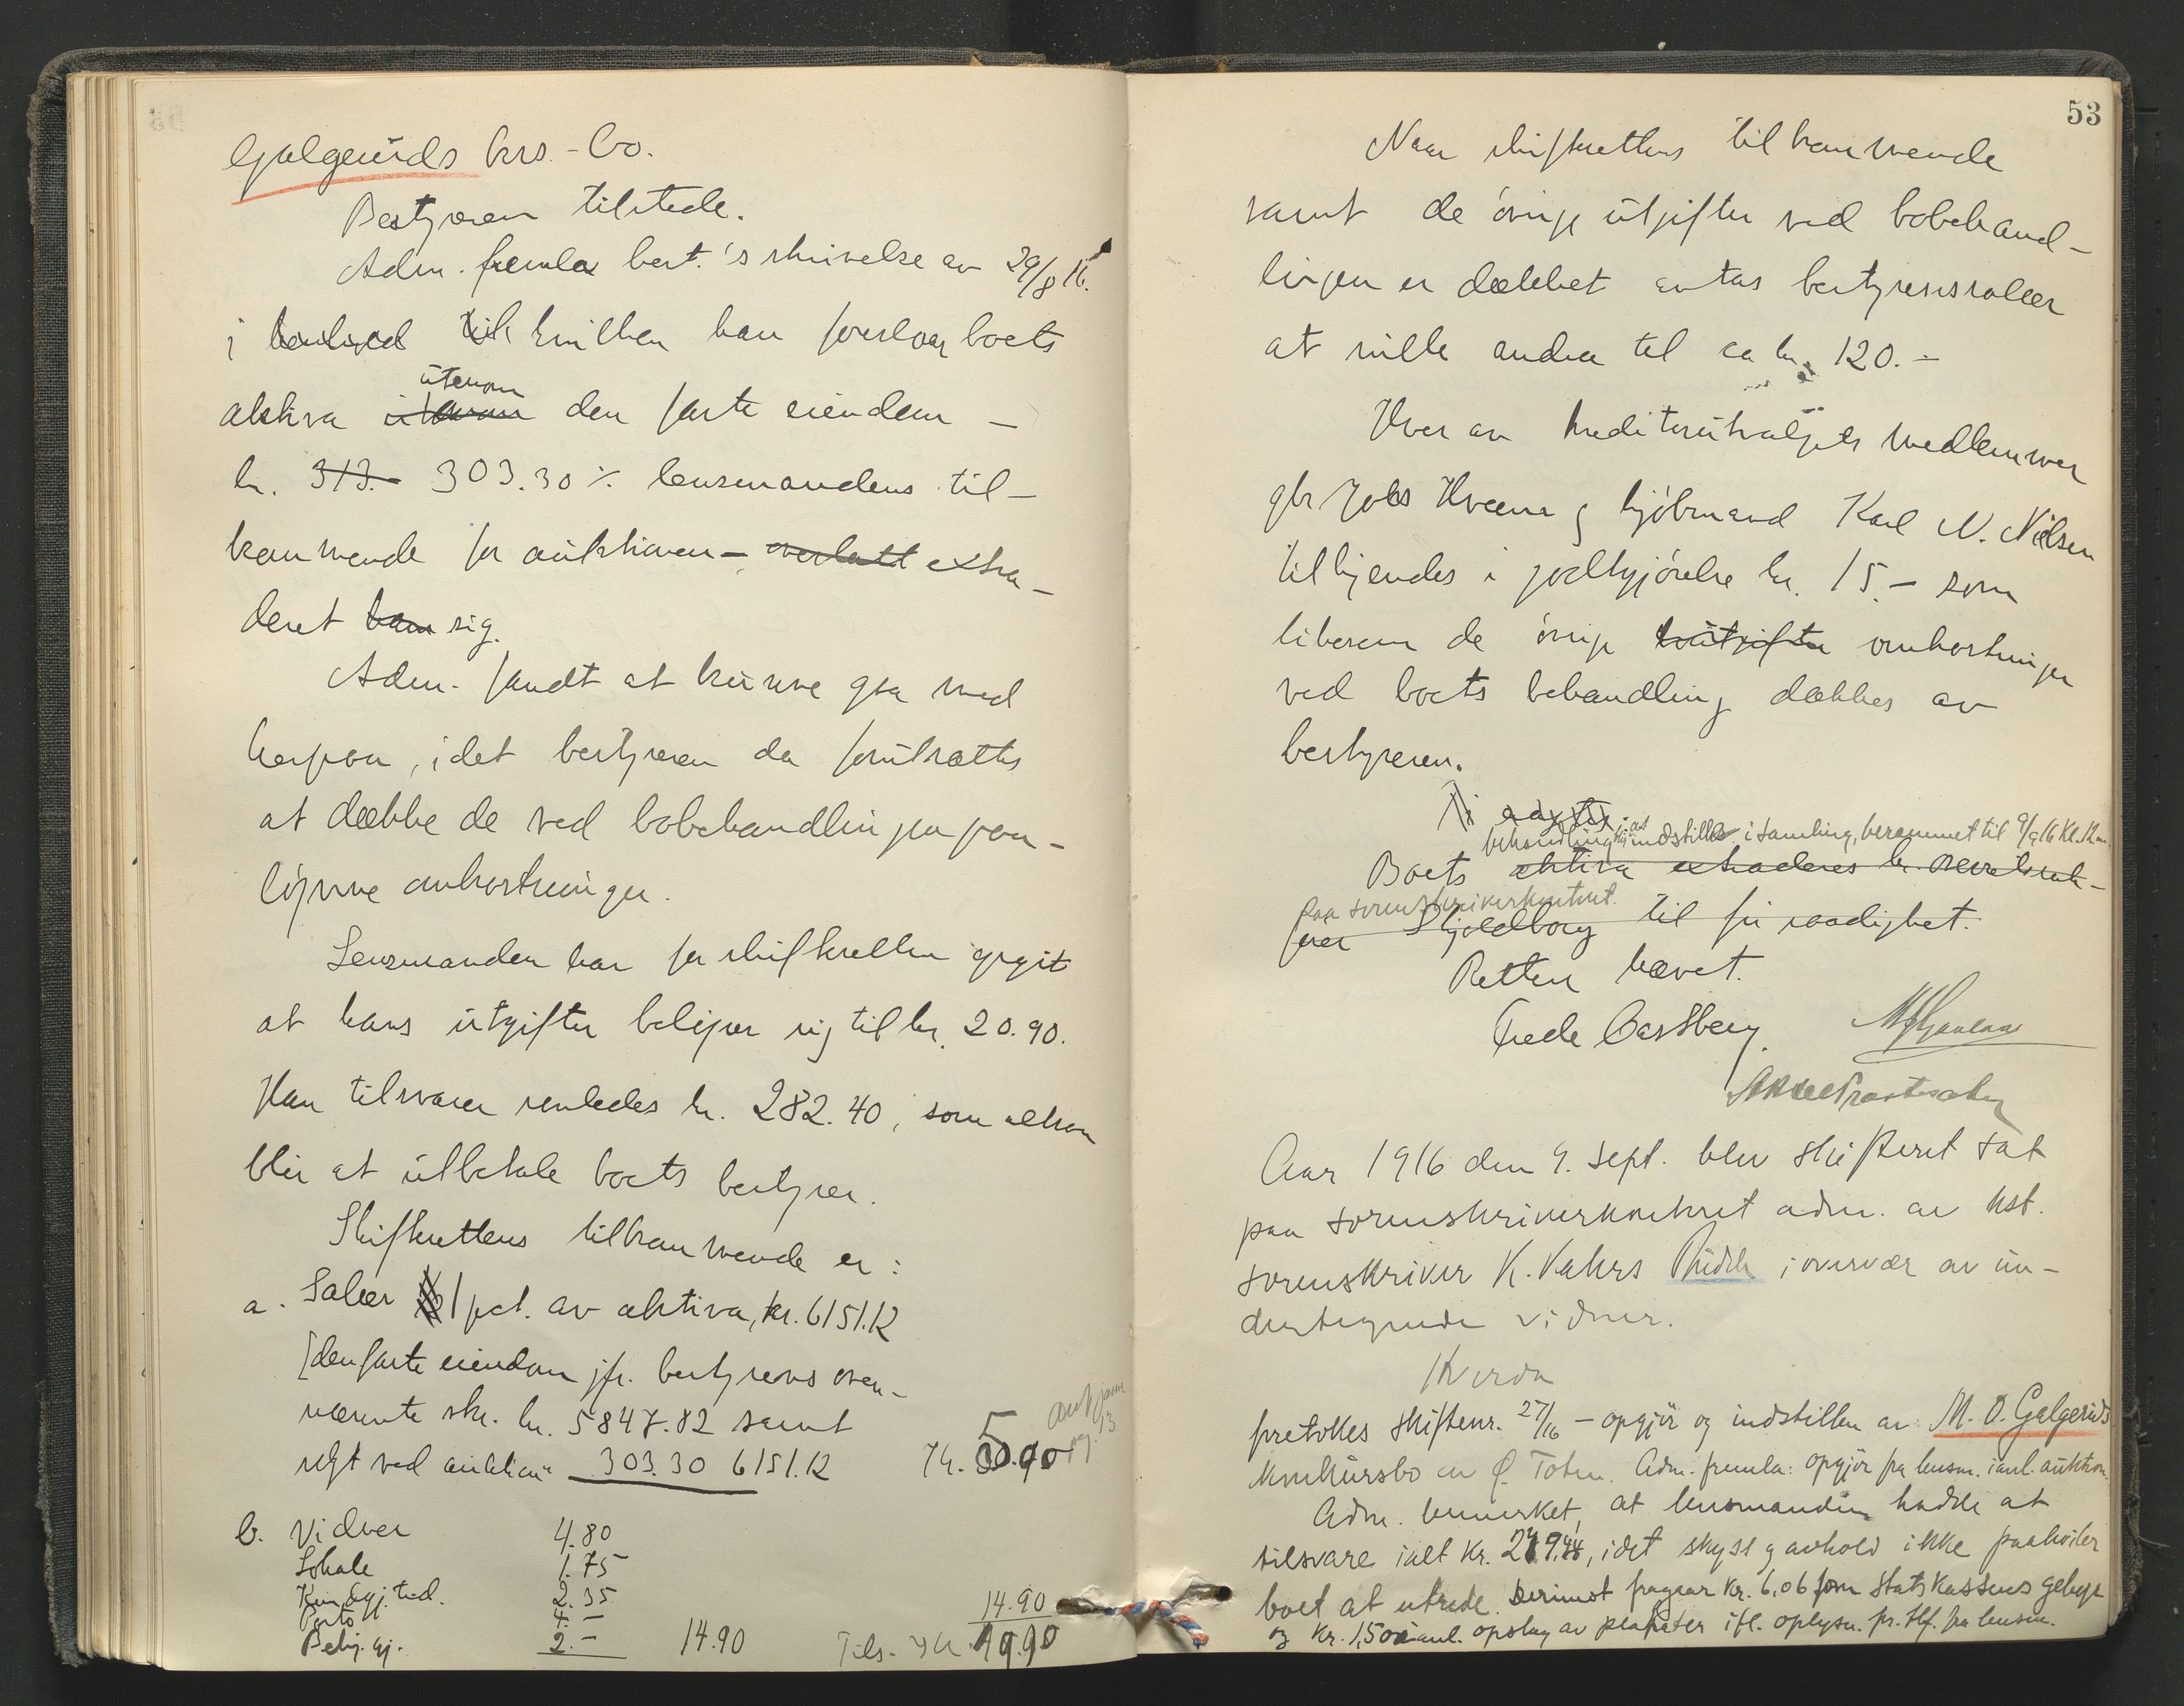 Galgeruds krs.-bo.
Bestyreren tilstede.
Adm. fremla best.'s skrivelse av 29/8 16.
i hvilken han foreslaar boets
aktiva utenom den faste eiendom –
kr. 313.– 303.30 ./. lensmandens til-
kommende for auktionen – overlatt extra-
deret ham sig.
Adm. fandt at kunne gaa med
herpaa, idet bestyreren da forutsættes
at dække de ved bobehandlingen paa-
løpne omkostninger.
Lensmanden har for skifteretten opgit
at hans utgifter beløper sig til kr. 20.90.
Han tilsvarer saaledes kr. 282.40, som altsaa
blir at utbetale boets bestyrer.
Skifterettens tilkommende er:
a. Salær 1 pct. av aktiva, kr. 6151.12
[den faste eiendom jfr. bestyrerens oven-
nævnte skr. kr. 5847.82 samt
solgt ved auktion 303.30 6151.12 Kr. 5.00
b. Vidner 4.80
Lokale 1.75
Kundgj. tid. 2.35
Porto 4.–
Bekj. gj. 2.– 14.90
14.90
Tils. Kr. 19.90
53
Naar skifterettens tilkommende
samt de øvrige utgifter ved bobehand-
lingen er dækket antas bestyrerens salær
at ville andra til ca kr. 120.–
Hver av kreditorutvalgets medlemmer
gbr Johs Hveem og kjøbmand Karl N. Nilsen
tilkjendes i godtgjørelse kr. 15.– som
likesom de øvrige utgifter omkostninger
ved boets behandling dækkes av
bestyreren.
behandling blir at indstilles i samling, berammet til 9/9 16 kl. 12 m.
Boets aktiva extraderes hr. overretssak-
paa sorenskriverkontoret.
fører Skjoldborg til fri raadighet.
Retten hævet.
Frede Castberg
Aar 1916 den 9. sept. blev skifteret sat
paa sorenskriverkontoret adm. av kst.
sorenskriver K. Kahrs i overvær av un-
dertegnede vidner.
Hvorda
foretokes skiftenr. 27/16 – opgjør og indstillen av M. O. Galgeruds
konkursbo av Ø. Toten. Adm. fremla: opgjør fra lensm. i anl. auktion.
Adm. bemerket, at lensmanden hadde at
tilsvare ialt kr. , idet skyss og avhold ikke paahviler
boet at utrede. Derimot fragaar kr. 6,06 som statskassens gebyr
og kr. 1,50 i anl. opslag av plakater ifl. oplysn. pr. tlf. fra lensm.